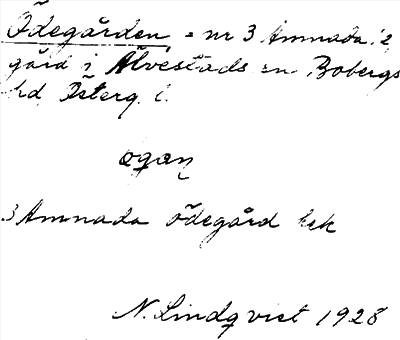 Ödegården = nr 3 Ämnada i 2
gård i Alvestads sn, Bobergs
hd, Österg. l.
3 Ämnada ödegård kk
N. Lindqvist 1928